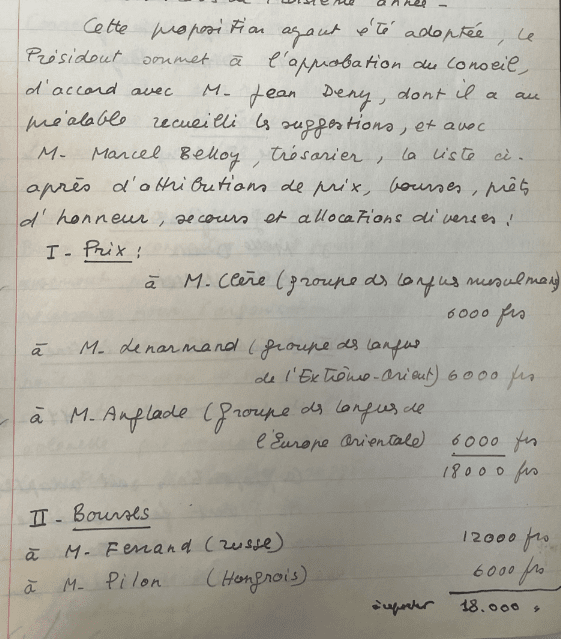 troisième année -
Cette proposition ayant été adoptée, le
Président soumet à l'approbation du Conseil,
d'accord avec M. Jean Deny, dont il a au
préalable recueilli les suggestions, et avec
M. Marcel Belloy, trésorier, la liste ci-
après d'attributions de prix, bourses, prêts
d'honneur, secours et allocations diverses :
I - Prix :
à M. Clère (groupe des langues musulmanes)
6000 frs
à M. Lenormand (groupe des langues
de l'Extrême-Orient) 6000 frs
à M. Anglade (groupe des langues de
l'Europe Orientale) 6000 frs
18000 frs
II - Bourses
à M. Ferrand (russe) 12000 frs
à M. Pilon (Hongrois) 6000 frs
à reporter 18.000 "